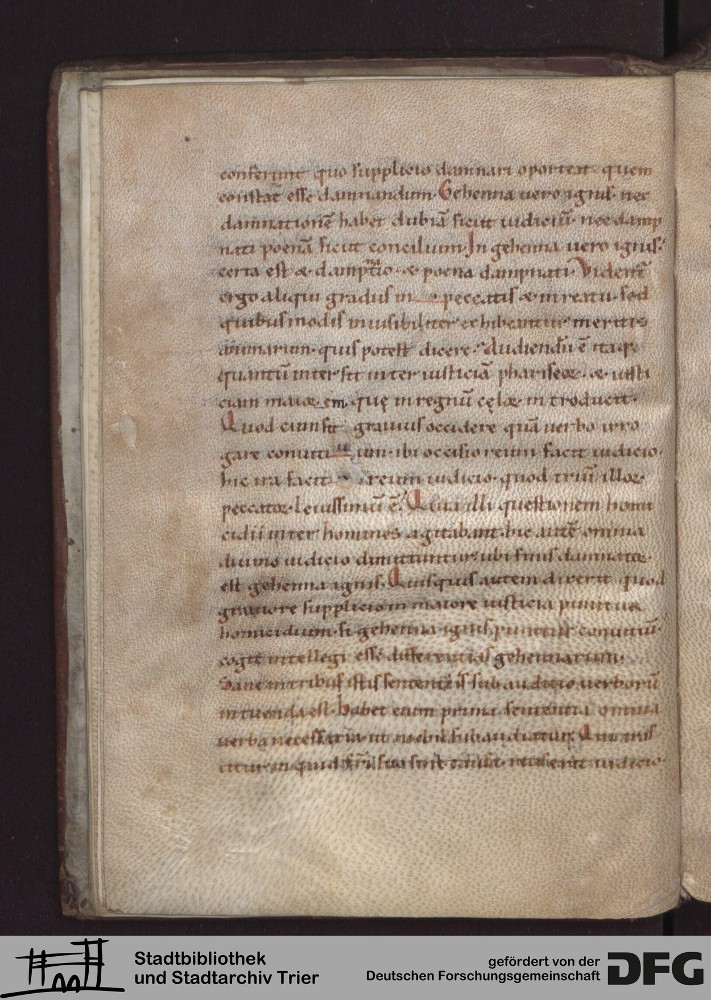 conferunt quo supplicio damnari oporteat quem
constat esse damnandum. Gehenna vero ignis nec
damnationē habet dubiā sicut iudiciū. nec damp
nati poenā sicut concilium. In gehenna vero ignis.
certa est & damptio. & poena dampnati. Videntē
ergo aliqui gradus in peccatis & in reatu. sed
quibus modis inuisibiliter exhibeantur meritis
animarum. quis potest dicere. Audiendū ē itaq;
quantū intersit inter iusticiā phariseoꝝ. & iusti
ciam maioꝝ em. quę in regnū cęloꝝ introducit.
Quod cum sit grauius occidere quā uerbo irro
gare conuitium. ibi occisio reum facit iudicio.
hic ira facit reum iudicio. quod triū illoꝝ
peccatoꝝ leuissimū ē. Quia illi questionem homi
cidii inter homines agitabant. hic autē omnia
diuino iudicio dimittuntur. ubi finis damnatoꝝ
est gehenna ignis. Quisquis autem dixerit quod
grauiore supplicio in maiore iusticia punitur
homicidium. si gehenna ignis punitur conuitiū.
cogit intellegi esse differentias gehennarum.
Sane in tribus istis sententiis subaudicio uerborū
intuenda est. habet enim prima sententia omnia
uerba necessaria ut nichil subaudiatur. Qui iras
citur inquid frī suo sine causa. reus erit iudicio.
Stadtbibliothek
und Stadtarchiv Trier
gefördert von der
Deutschen Forschungsgemeinschaft
DFG